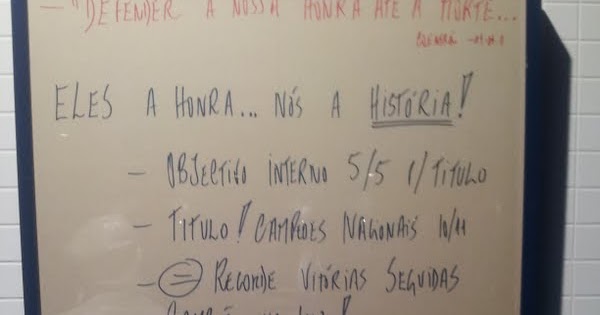 - "DEFENDER A NOSSA HONRA ATÉ A MORTE...
ELES A HONRA... NÓS A HISTÓRIA!
- OBJECTIVO INTERNO 5/5 C/ TITULO
- TITULO! CAMPEÕES NACIONAIS 10/11
- = RECORDE VITÓRIAS SEGUIDAS